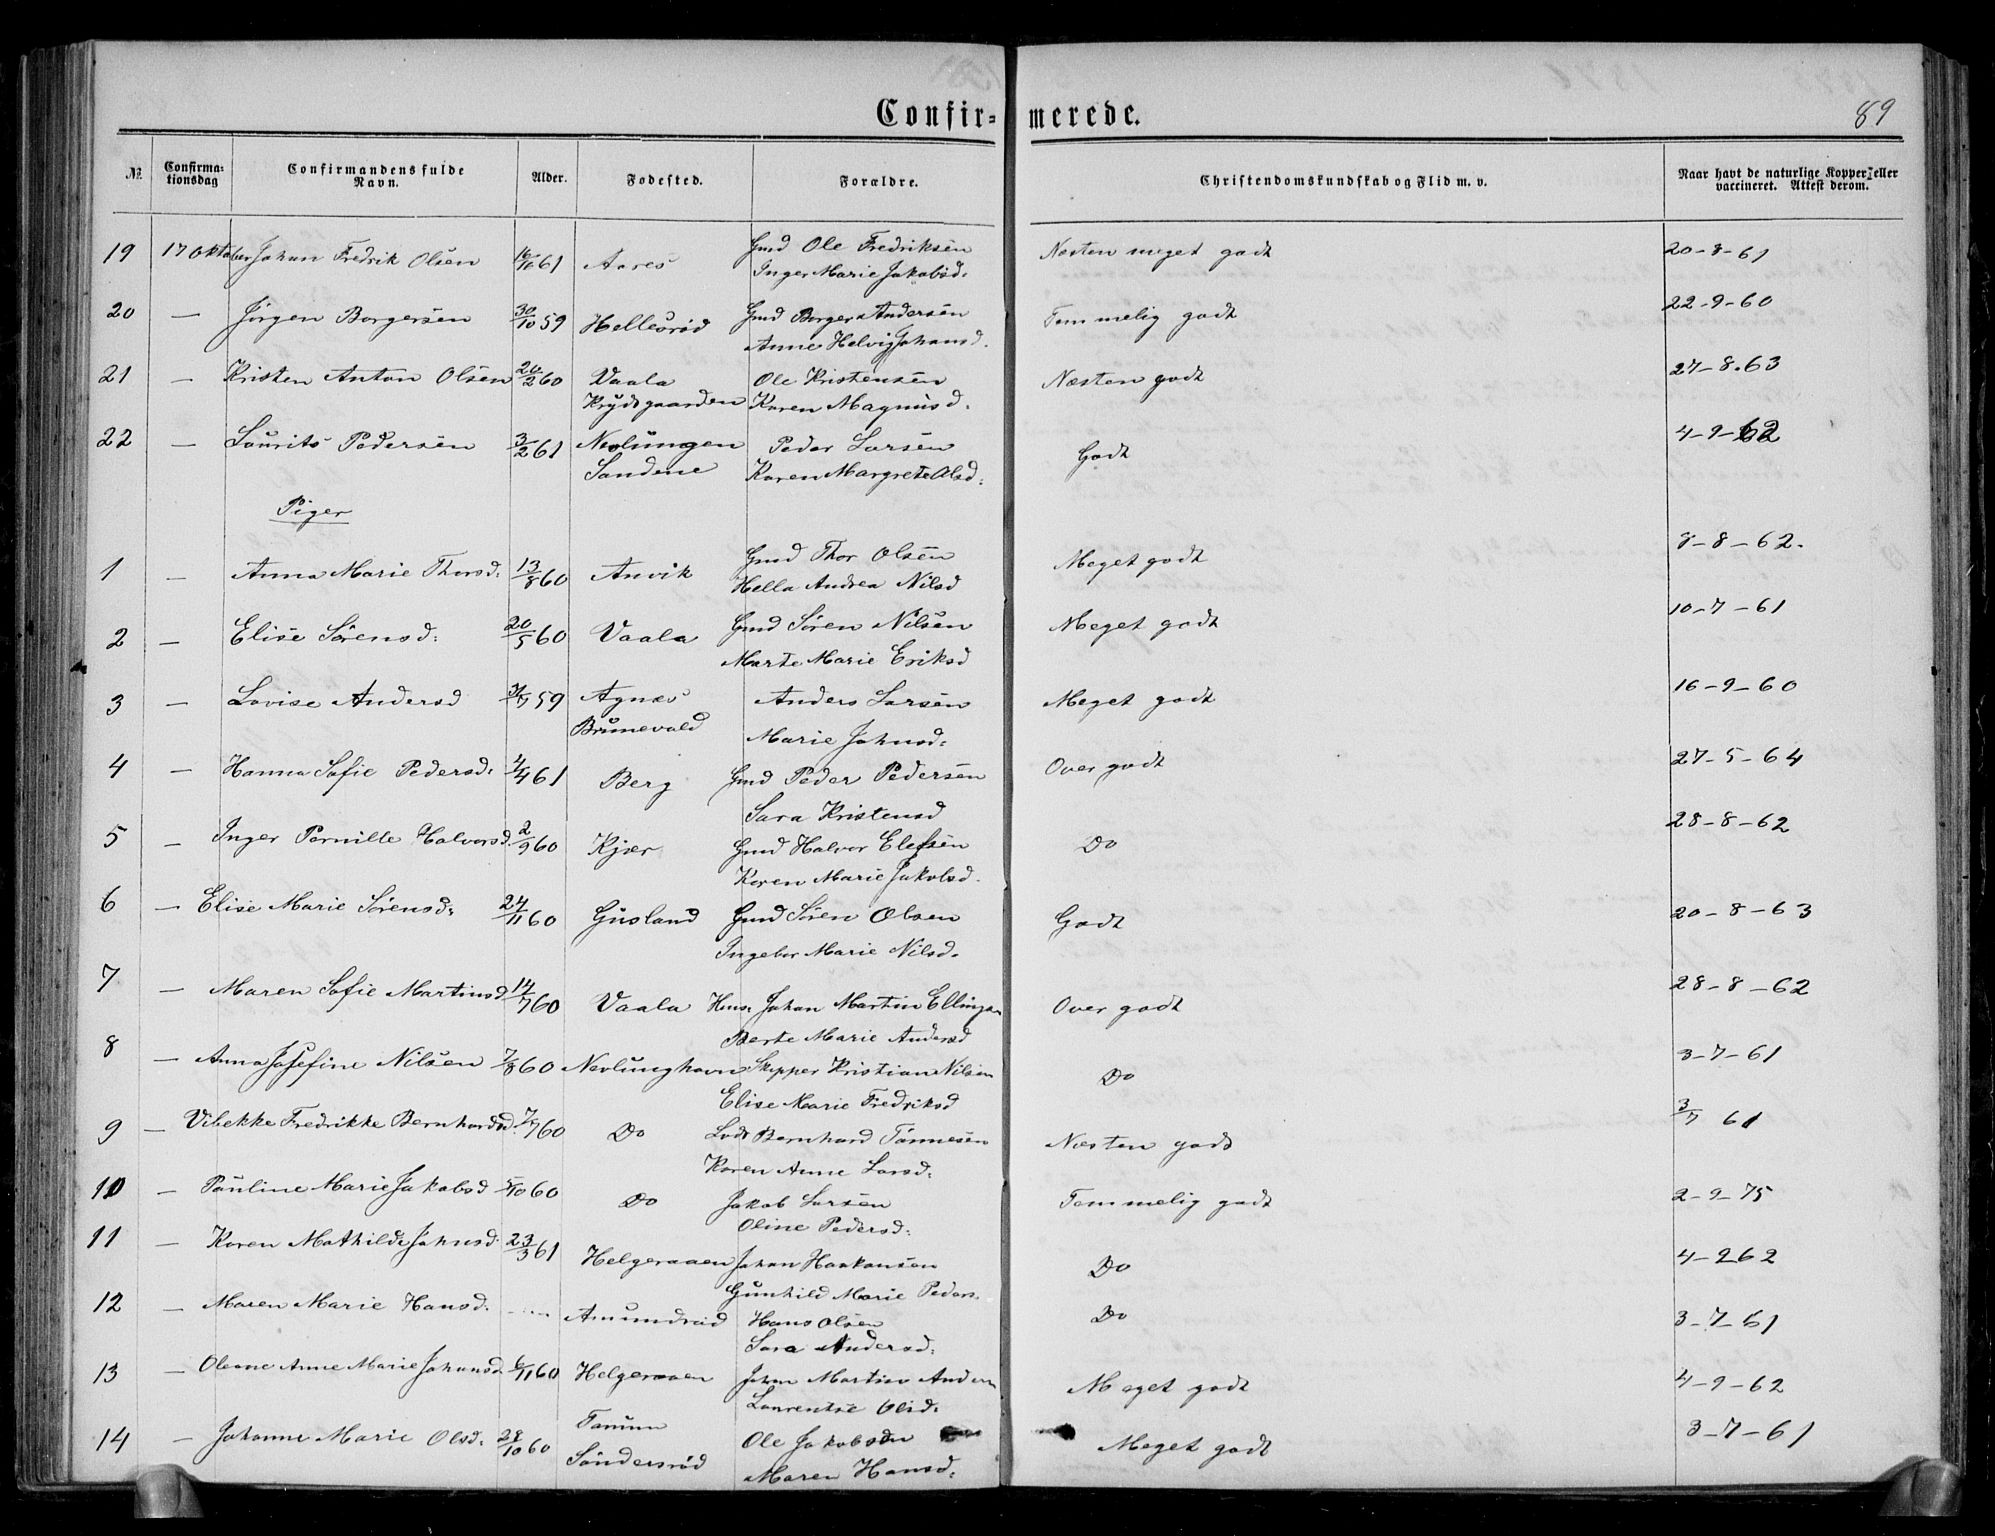 Confir= merede.
89
№ Confirma-tionsdag Confirmandens fulde Navn. Alder. Fødested. Forældre. Christendomskundskab og Flid m. v. Naar havt de naturlige Kopper eller vaccineret. Attest derom.
19 17 Oktober Johan Fredrik Olsen 61 Aares Gmd Ole Fredriksen Næsten meget godt 20-8-61
Inger Marie Jakobsd:
20 — Jörgen Borgersen 30/10 59 Helleröd Gmd Borger Andersen Temmelig godt 22-9-60
Anne Helvig Johansd.
21 — Kristen Anton Olsen 20/2 60 Vaala Ole Kristensen Næsten godt 27-8-63
Krydsgaarden Karen Magnusd.
22 — Laurits Pedersen 3/2 61 Nevlungen Peder Larsen Godt 4-9-62
Sandene Karen Margrete Olsd:
Piger
1 — Anna Marie Thorsd: 13/8 60 Anvik Gmd Thor Olsen Meget godt 8-8-62.
Hella Andrea Nilsd
2 — Elise Sörensd: 20/5 60 Vaala Gmd Sören Nilsen Meget godt 10-7-61
Marte Marie Eriksd
3 — Lovise Andersd 59 Agnes Anders Larsen Meget godt 16-9-60
Brunevald Marie Johnsd:
4 — Hanna Sofie Pedersd: 4/4 61 Berg Gmd Peder Pedersen Over godt 27-5-64
Sara Kristensd
5 — Inger Pernille Halvorsd. 2/9 60 Kjær Gmd Halvor Elefsen Do 28-8-62
Karen Marie Jakobsd.
6 — Elise Marie Sörensd: 24/11 60 Gusland Gmd Sören Olsen Godt 20-8-63
Ingebor Marie Nilsd.
7 — Maren Sofie Martinsd 14/7 60 Vaala Husm Johan Martin Ellingsen Over godt 28-8-62
Berte Marie Andersd
8 — Anna Josefine Nilsen 7/8 60 Nevlunghavn Skipper Kristian Nilsen Do 3-7-61
Elise Marie Fredriksd
9 — Vibekke Fredrikke Bernhardsd. 7/7 60 Do Lods Bernhard Tönnesen Næsten godt 3/7 61
Karen Anne Larsd:
10 — Pauline Marie Jakobsd 5/10 60 Do Jakob Larsen Temmelig godt 2-9-75
Oline Pedersd:
11 — Karen Mathilde Johnsd. 23/3 61 Helgeraaen Johan Haakonsen Do 4-9 62
Gunhild Marie Peders.
12 — Maren Marie Hansd. Amundröd Hans Olsen Do 3-7-61
Sara Andersd:
13 — Oleane Anne Marie Johansd 6/11 60 Helgeraaen Johan Martin Anders Meget godt 4-9-62
Laurentse Olsd:
14 — Johanne Marie Olsd: 28/10 60 Tanum Ole Jakobsen Meget godt 3-7-61
Söndersröd Maren Hansd: